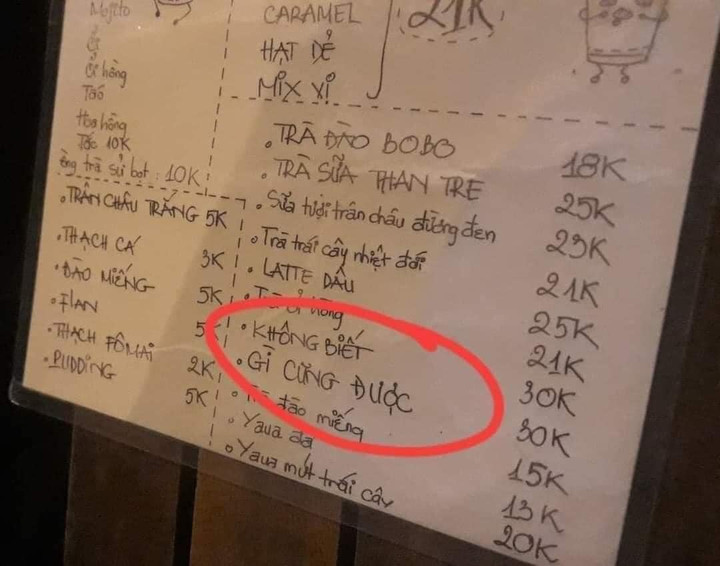 Mojito
ổi
ổi hồng
Táo
Hoa hồng
Tắc 10K
trà sủi bọt : 10K
CARAMEL
HẠT DẺ
MIX VỊ
21K
• TRÂN CHÂU TRẮNG 5K
• THẠCH CÁ 3K
• ĐÀO MIẾNG 5K
• FLAN 5K
• THẠCH FÔMAI 2K
• PUDDING 5K
• TRÀ ĐÀO BOBO 18K
• TRÀ SỮA THAN TRE 25K
• Sữa tươi trân châu đường đen 23K
• Trà trái cây nhiệt đới 21K
• LATTE DÂU 25K
• Trà ổi hồng 21K
• KHÔNG BIẾT 30K
• GÌ CŨNG ĐƯỢC 30K
• Trà đào miếng 15K
• Yaua đá 13K
• Yaua mứt trái cây 20K